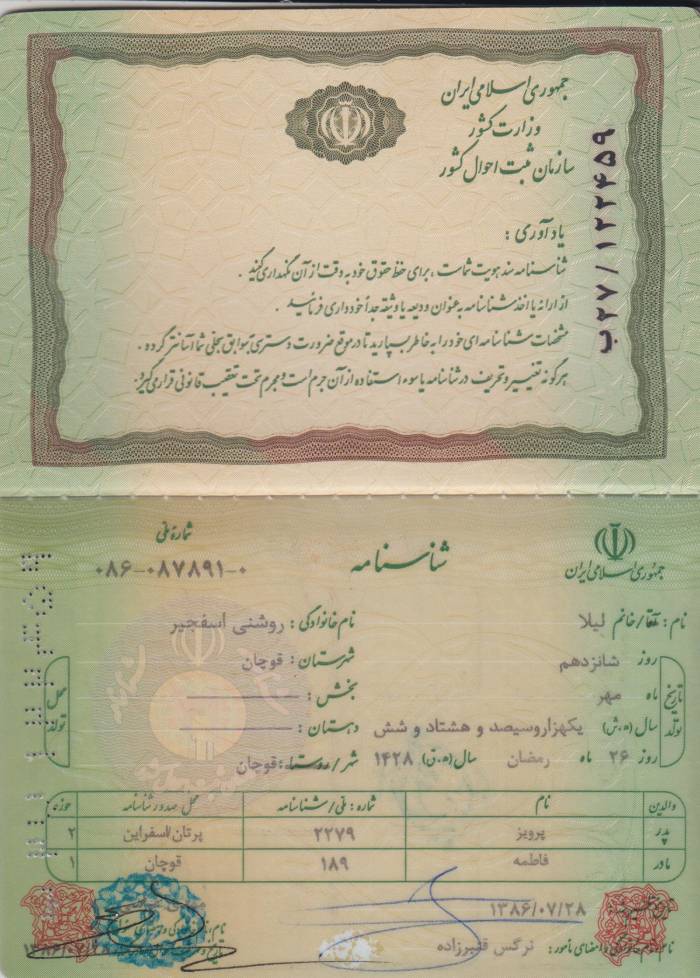 جمهوری اسلامی ایران
وزارت کشور
سازمان ثبت احوال کشور
ب۲۷/۱۲۲۴۵۹
یادآوری :
شناسنامه سند هویت شماست ، برای حفظ حقوق خود به دقت از آن نگهداری کنید .
از ارائه یا اخذ شناسنامه به عنوان ودیعه یا وثیقه جداً خودداری فرمائید .
مشخصات شناسنامه ای خود را به خاطر بسپارید تا در موقع ضرورت دسترسی به سوابق سجلی شما آسانتر گردد .
هرگونه تغییر و تحریف در شناسنامه یا سوء استفاده از آن جرم است و مجرم تحت تعقیب قانونی قرار می گیرد .
جمهوری اسلامی ایران
شناسنامه
شماره ملی
۰۸۶-۰۸۷۸۹۱-۰
نام : آقا/خانم لیلا
نام خانوادگی : روشنی اسفجیر
تاریخ تولد
روز شانزدهم
ماه مهر
سال (ه.ش) یکهزاروسیصد و هشتاد و شش
روز ۲۶ ماه رمضان سال (ه.ق) ۱۴۲۸
محل تولد
شهرستان : قوچان
بخش :
دهستان :
شهر/روستا : قوچان
والدین نام شماره : ملی/شناسنامه محل صدور شناسنامه حوزه
پدر پرویز ۲۲۷۹ پرتان/اسفراین ۲
مادر فاطمه ۱۸۹ قوچان ۱
۱۳۸۶/۰۷/۲۸
نام، نام خانوادگی و امضای مأمور : نرگس قنبرزاده
۱۳۸۶/۰۷/۲۸